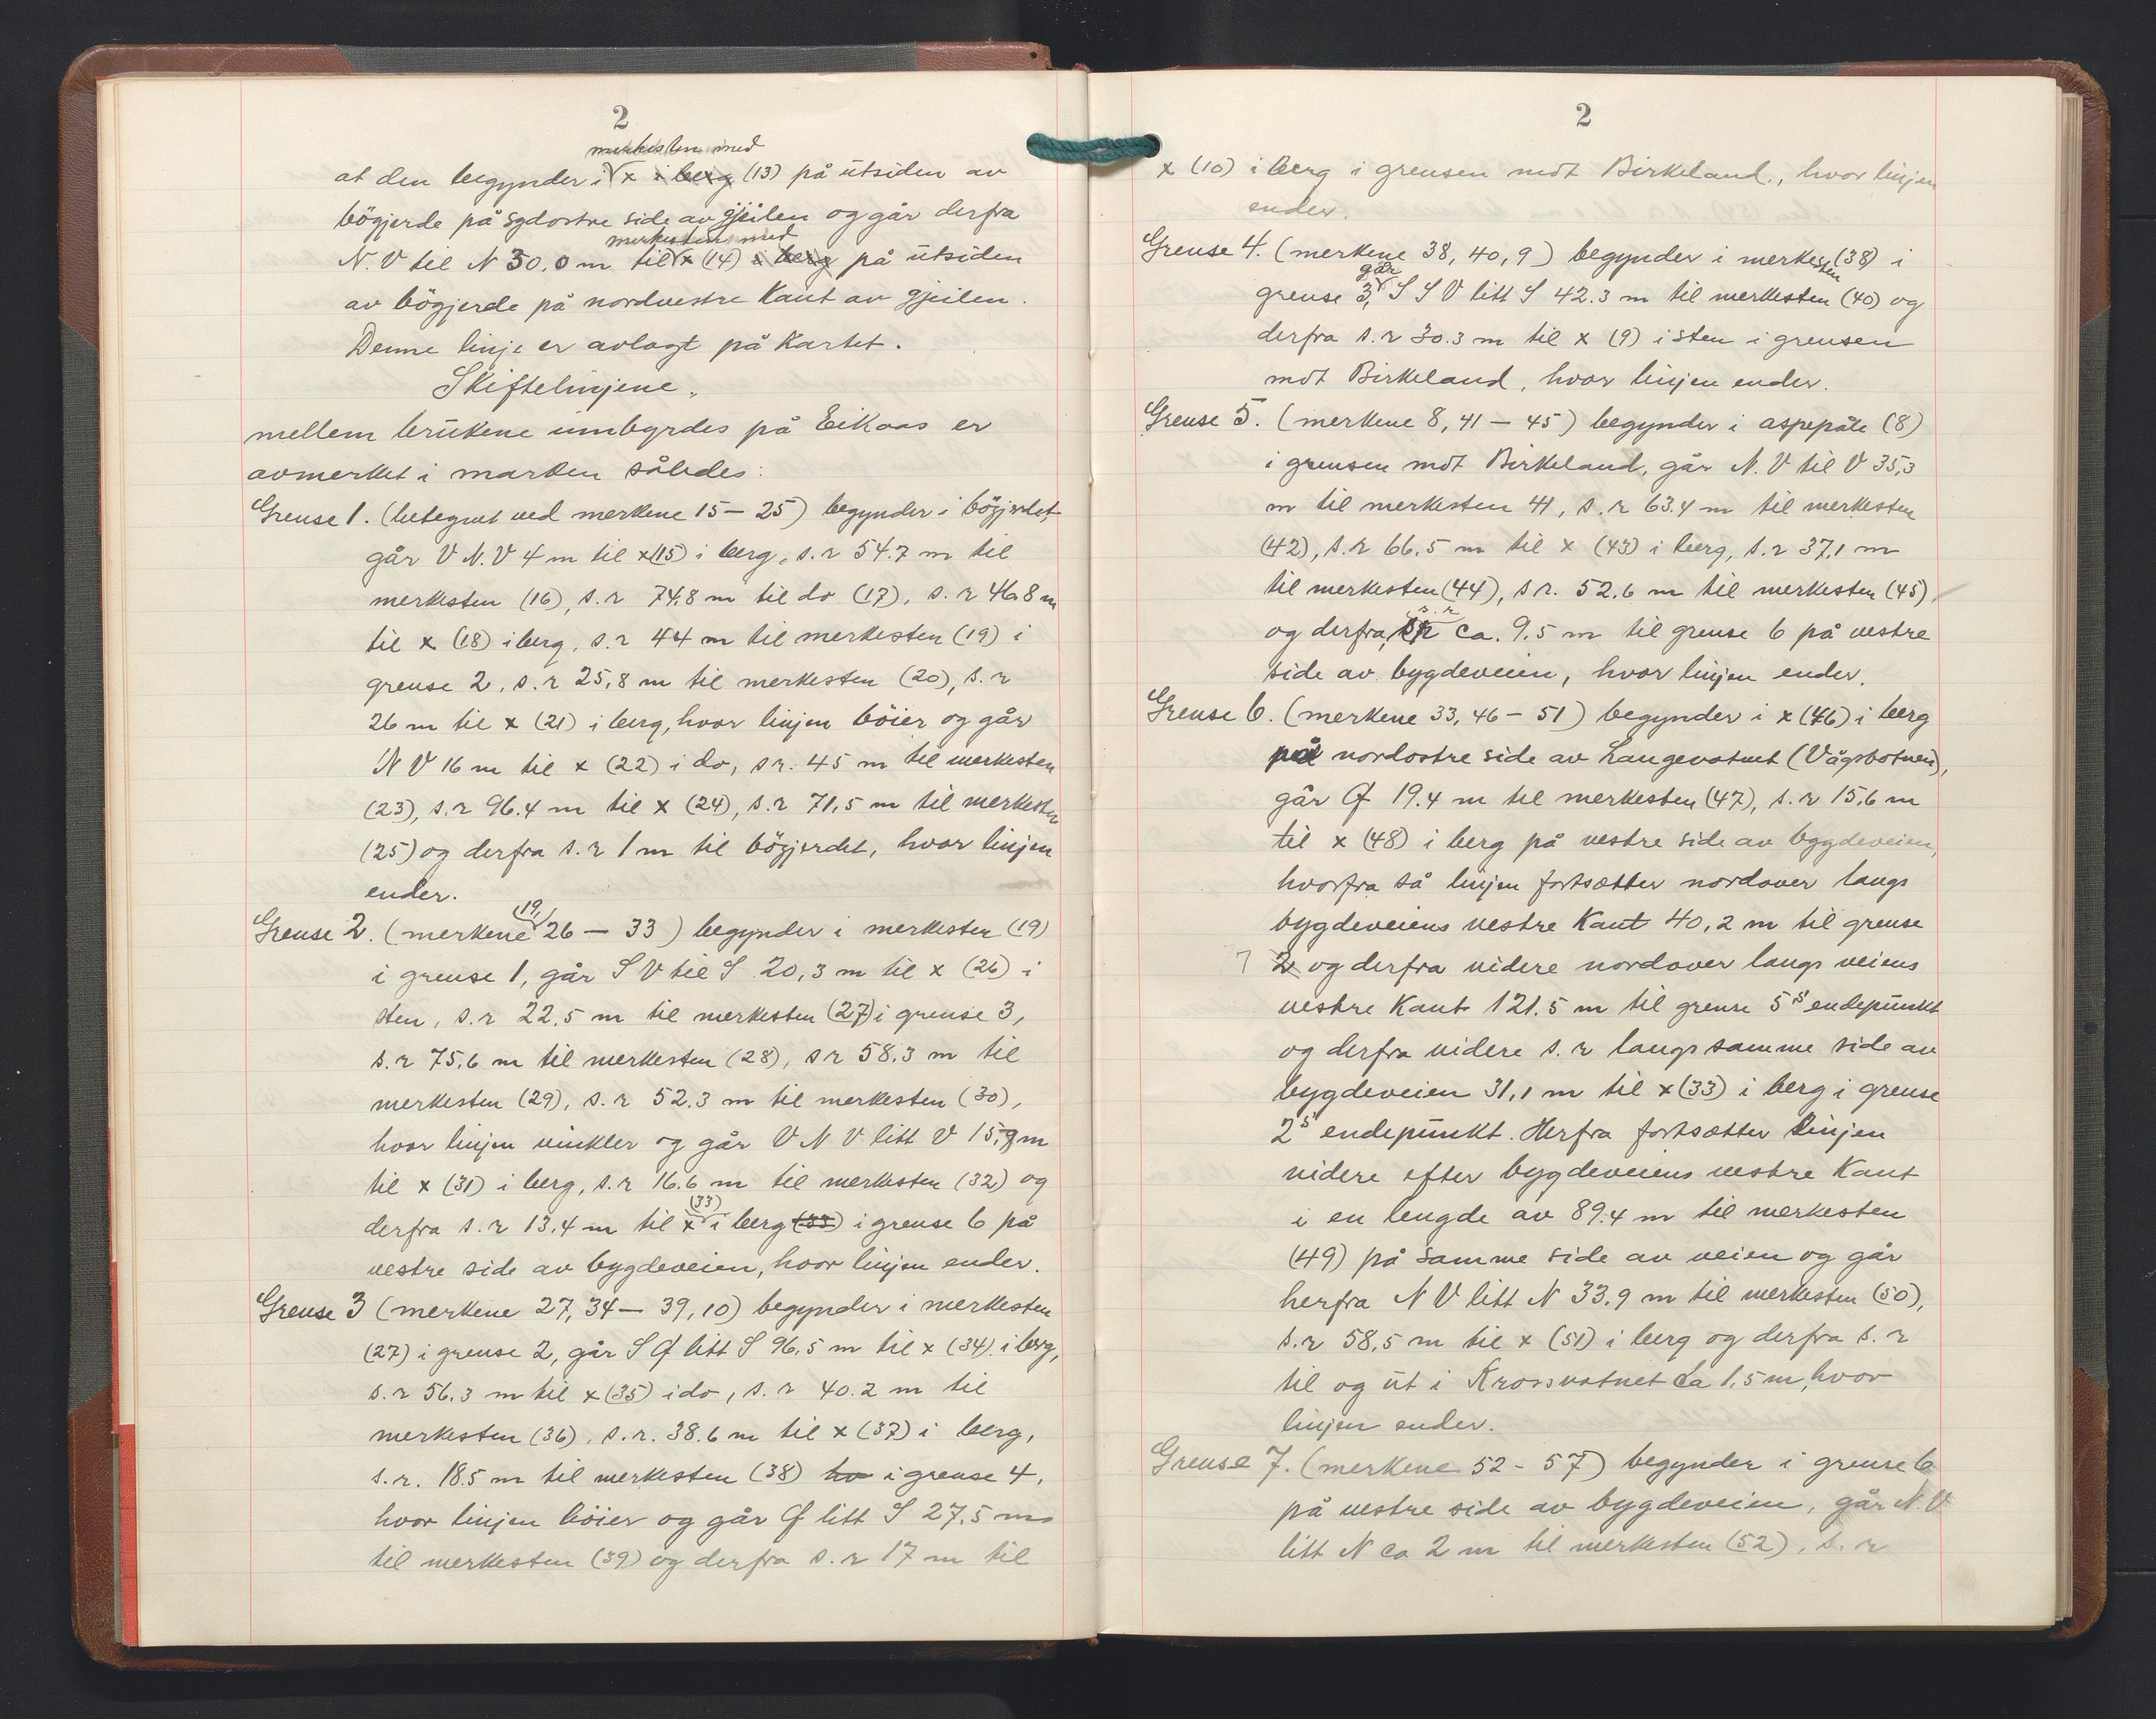 2
merkesten med
at den begynder i x i berg (13) på utsiden av
bögjerde på sydostre side av gjeilen og går derfra
merkesten med
N.V til N 30.0 m til x (14) i berg på utsiden
av bögjerde på nordvestre Kant av gjeilen.
Denne linje er avlagt på Kartet.
Skiftelinjene.
mellem brukene innbyrdes på Eikaas er
avmerket i marken således:
Grense 1. (betegnet ved merkene 15 – 25) begynder i bögjerdet
går V N.V 4 m til x (15) i berg, s.r 54.7 m til
merkesten (16), s.r 74,8 m til do (17), s.r 46.8 m
til x (18) i berg, s.r 44 m til merkesten (19) i
grense 2, s.r 25,8 m til merkesten (20), s.r
26 m til x (21) i berg, hvor linjen böier og går
N V 16 m til x (22) i do, s r. 45 m til merkesten
(23), s.r 96.4 m til x (24), s.r 71,5 m til merkesten
(25) og derfra s.r 1 m til bögjerdet, hvor linjen
ender.
(19,)
Grense 2. (merkene 26 – 33) begynder i merkesten (19)
i grense 1, går S V til S 20,3 m til x (26) i
sten, s.r 22,5 m til merkesten (27) i grense 3,
s.r 75,6 m til merkesten (28), s r 58.3 m til
merkesten (29), s.r 52.3 m til merkesten (30),
hvor linjen vinkler og går V N V litt V 15,9 m
til x (31) i berg, s.r 16.6 m til merkesten (32) og
(33)
derfra s.r 13,4 m til x i berg (33) i grense 6 på
vestre side av bygdeveien, hvor linjen ender.
Grense 3 (merkene 27, 34 – 39, 10) begynder i merkesten
(27) i grense 2, går S Ø litt S 96,5 m til x (34) i berg,
s.r 56.3 m til x (35) i do, s.r 40.2 m til
merkesten (36), s.r. 38.6 m til x (37) i berg,
s.r. 18.5 m til merkesten (38) hvo i grense 4,
hvor linjen böier og går Ø litt S 27,5 m
til merkesten (39) og derfra s.r 17 m til
2
x (10) i berg i grensen mot Birkeland., hvor linjen
ender.
Grense 4. (merkene 38, 40, 9) begynder i merkesten (38) i
går
grense 3, S S V litt S 42.3 m til merkesten (40) og
derfra s.r 30.3 m til x (9) i sten i grensen
mot Birkeland, hvor linjen ender.
Grense 5. (merkene 8, 41 – 45) begynder i aspepåle (8)
i grensen mot Birkeland, går N.V til V 35,3
m til merkesten 41, s.r 63.4 m til merkesten
(42), s.r 66.5 m til x (43) i berg, s.r 37,1 m
til merkesten (44), s r. 52.6 m til merkesten (45),
s.r
og derfra, ca. 9.5 m til grense 6 på vestre
side av bygdeveien, hvor linjen ender.
Grense 6. (merkene 33, 46 – 51) begynder i x (46) i berg
på nordostre side av Langevatnet (Vågsbotnen),
går Ø 19.4 m til merkesten (47), s.r 15,6 m
til x (48) i berg på vestre side av bygdeveien,
hvorfra så linjen fortsætter nordover langs
bygdeveiens vestre Kant 40,2 m til grense
7 2 og derfra videre nordover langs veiens
vestre Kant 121.5 m til grense 5s endepunkt
og derfra videre s.r langs samme side av
bygdeveien 31,1 m til x (33) i berg i grense
2s endepunkt. Herfra fortsætter linjen
videre efter bygdeveiens vestre Kant
i en lengde av 89.4 m til merkesten
(49) på samme side av veien og går
herfra N V litt N 33.9 m til merkesten (50),
s.r 58,5 m til x (51) i berg og derfra s.r
til og ut i Krossvatnet ca 1.5 m, hvor
linjen ender.
Grense 7. (merkene 52 – 57) begynder i grense 6
på vestre side av bygdeveien, går N.V
litt N ca 2 m til merkesten (52), s.r